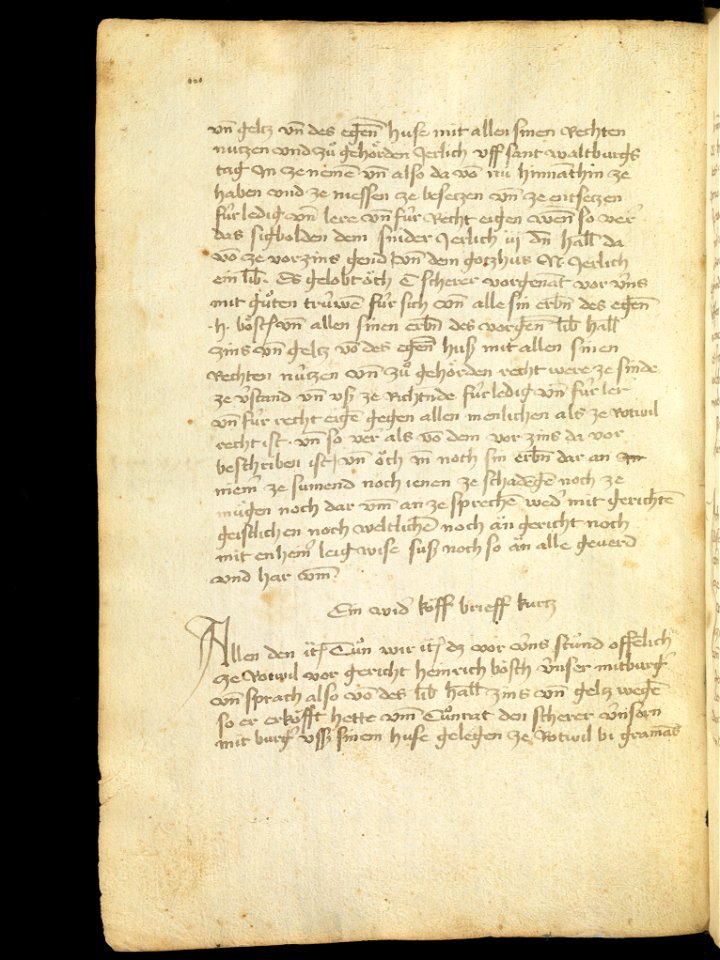 vn̄ geltz vn̄ des egen̄ huse mit allen sinen Rechten
nutzen vnd zů gehörden Jerlich vff sant waltburgs
tag In ze nemē vn̄ also da vō nu hinnāthin ze
haben vnd ze niessen ze besetzen vn̄ ze entsetzen
fúr ledig vn̄ lere vn̄ fúr Recht eigen wen̄ so ver
das sigbolden dem snider Jerlich iij dn̄ hall da
vō ze vorzins gend vn̄ dem gotzhus N. Jerlich
ein lib. Es gelobt ŏch C scherer vorgenāt vor v́ns
mit gůten trúwē fúr sich vn̄ alle sin erbn̄ des egen̄
·h· bŏsch vn̄ allen sinen erbn̄ des vorgen̄ lib hall
zins vn̄ geltz vō des egen̄ huß mit allen sinen
Rechten nützen vn̄ zů gehörden recht were ze sinde
ze v́stand vn̄ vß ze Richtnde fúr ledig vn̄ fúr ler
vn̄ fúr recht eigē gegen allen menlichen als ze Rotwil
recht ist · vn̄ so ver als vō dem vor zins da vor
beschriben ist / vn̄ ŏch in noch sin erbn̄ dar an
niem̄ ze sumend noch ienen ze schadegē noch ze
mügen noch dar vm̄ an ze sprechē wed mit gerichtē
geistlichen noch weltlichē noch ān gericht noch
mit enheīr leig wise suß noch so ān alle geuerd
vnd har vm̄
Ein wid kŏff brieff kurtz
Allen den Tůn wir dz vor v́ns stůnd offēlich
ze Rotwil vor gericht heinrich bŏsch v́nser mitburg
vn̄ sprach also vō des lib hall zins vn̄ geltz wegē
so er erkŏfft hette vm̄ Cůnrat den scherer v́nsern
mit burg vss sinem huse gelegen ze Rotwil bi gramās